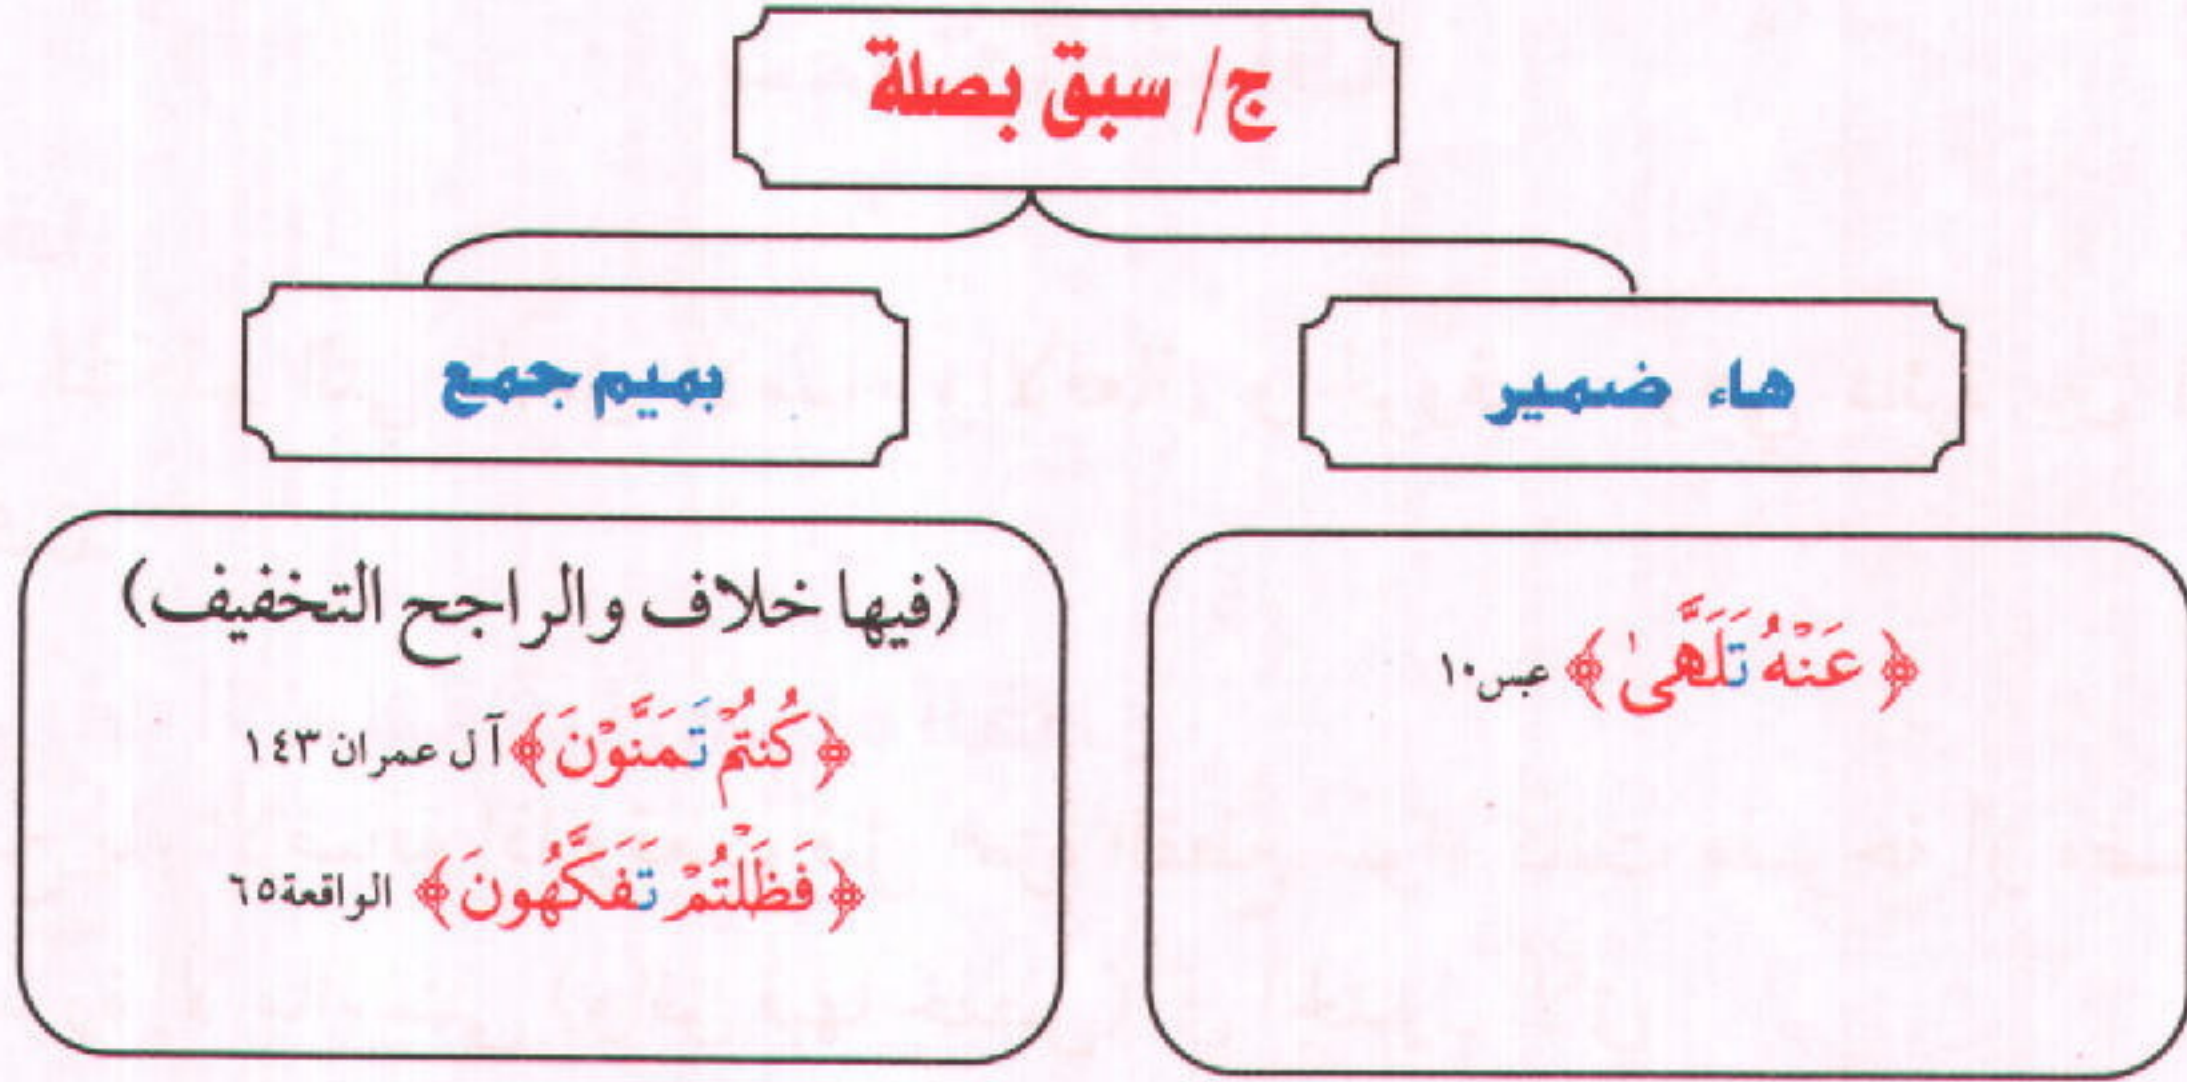 ج/ سبق بصلة
هاء ضمير
﴿عَنْهُ تَلَهَّىٰ﴾ عبس١٠
بميم جمع
(فيها خلاف والراجح التخفيف)
﴿كُنتُمْ تَمَنَّوْنَ﴾ آل عمران ١٤٣
﴿فَظَلْتُمْ تَفَكَّهُونَ﴾ الواقعة٦٥